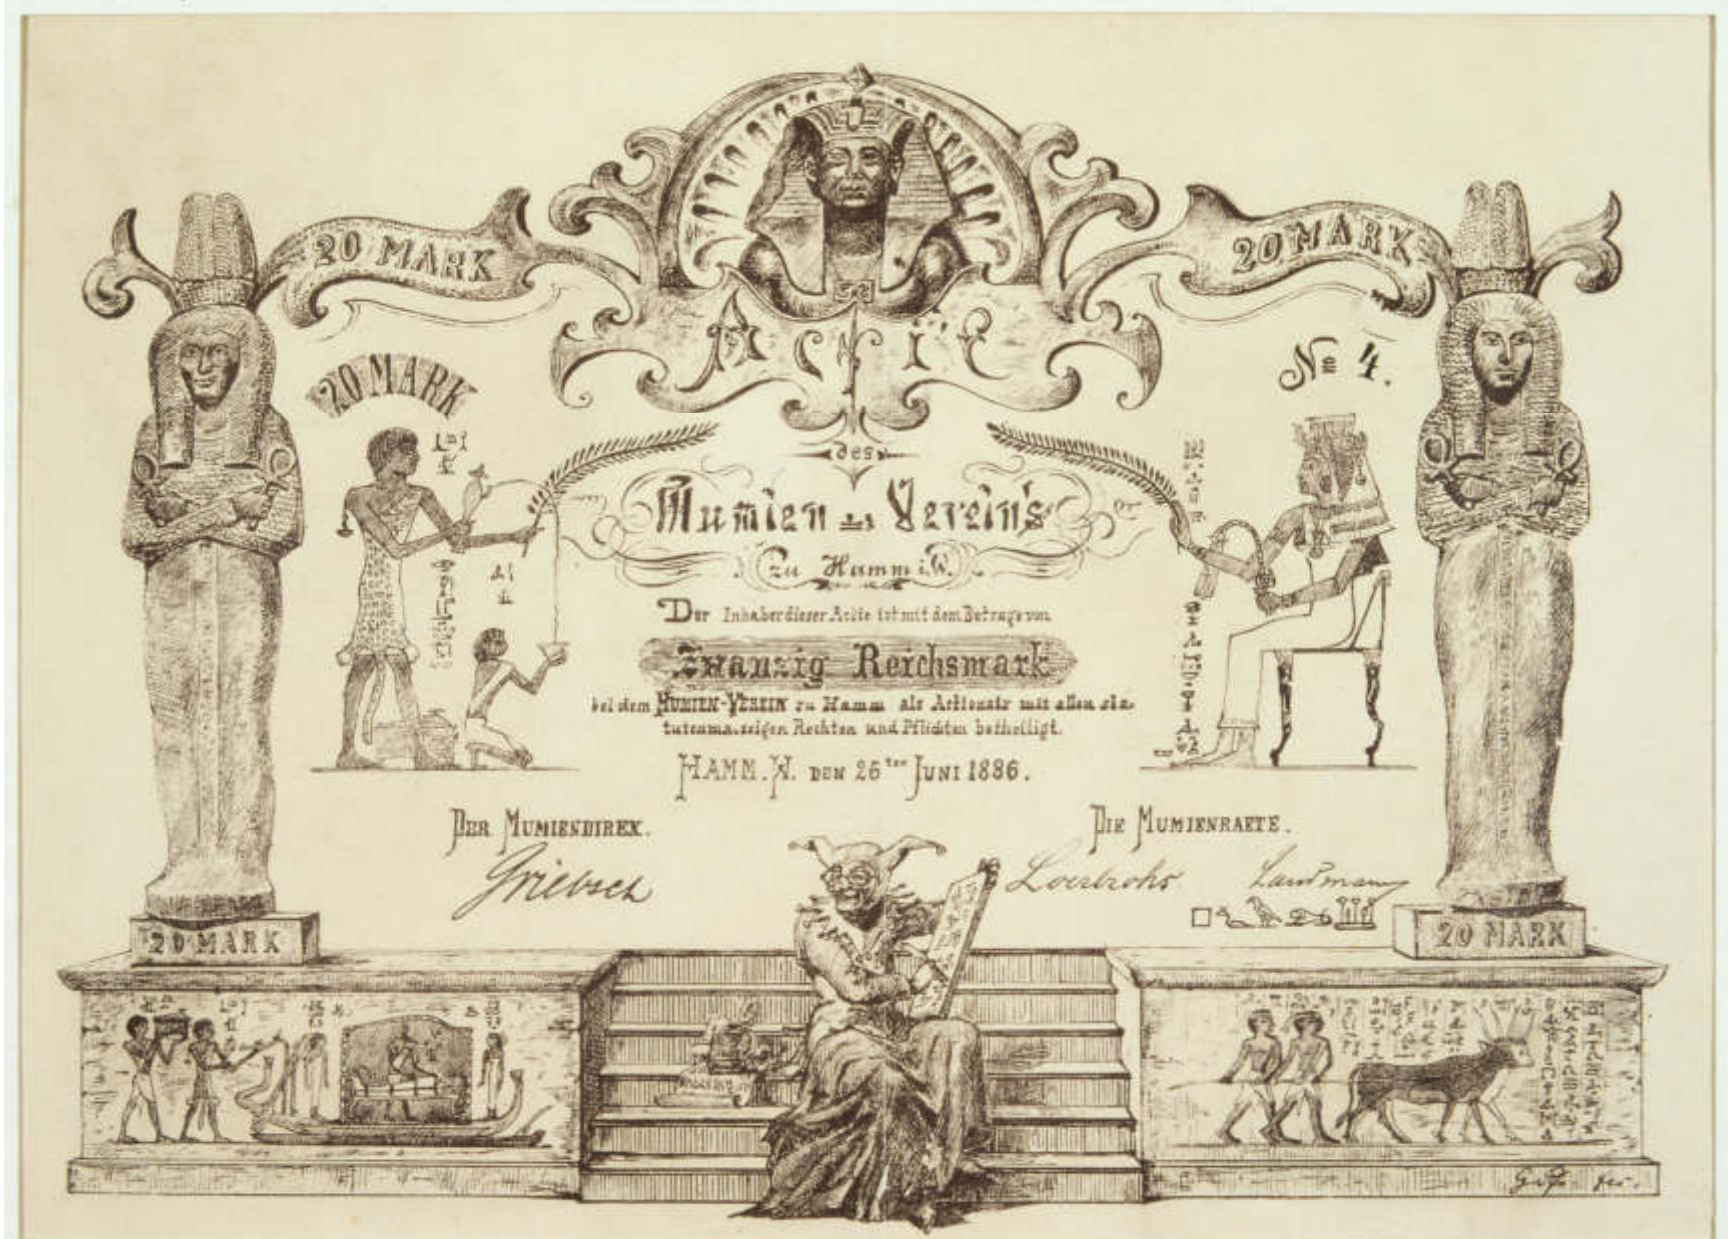 20 MARK
20 MARK
Actie
20 MARK
№ 4.
des
Mumien-Vereins
zu Hamm i. W.
Der Inhaber dieser Actie ist mit dem Betrage von
Zwanzig Reichsmark
bei dem MUMIEN-VEREIN zu Hamm als Actionair mit allen sta-
tutenmässigen Rechten und Pflichten betheiligt.
HAMM. W. DEN 26ten JUNI 1886.
DER MUMIENDIREX.
DIE MUMIENRAETE.
Griebsch
Loerbroks
Landmann
20 MARK
20 MARK